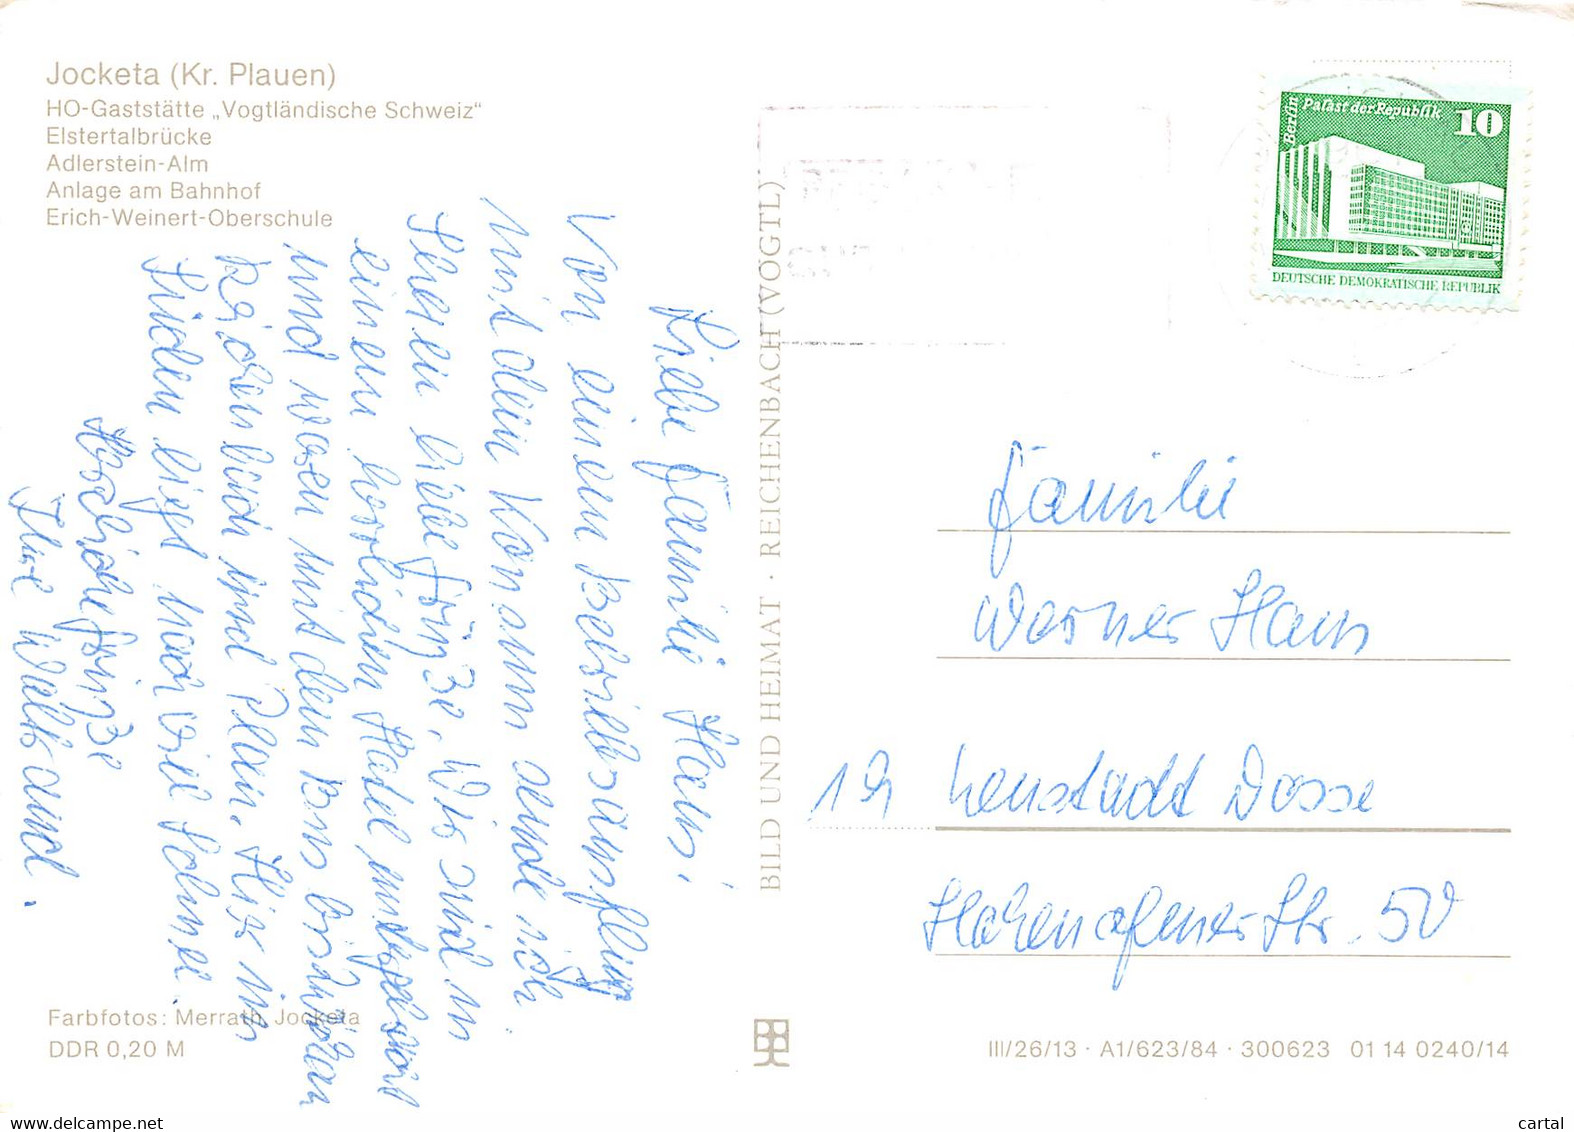 Jocketa (Kr. Plauen)
HO-Gaststätte „Vogtländische Schweiz"
Elstertalbrücke
Adlerstein-Alm
Anlage am Bahnhof
Erich-Weinert-Oberschule
Liebe Familie Haus!
Von einem Betriebsausflug
mit dem Konsum sende ich
Ihnen liebe Grüße. Wir sind in
einem herrlichen Hotel
und waren mit dem Bus
Reichenbach und Plauen. Hier im
Süden liegt noch viel Schnee.
Herzliche Grüße
Ihre
BILD UND HEIMAT · REICHENBACH (VOGTL)
Berlin
Palast der Republik
10
DEUTSCHE DEMOKRATISCHE REPUBLIK
Familie
Werner Haus
19 Neustadt Dosse
Str. 50
Farbfotos: Merrath, Jocketa
DDR 0,20 M
III/26/13 · A1/623/84 · 300623 01 14 0240/14
www.delcampe.net
cartal